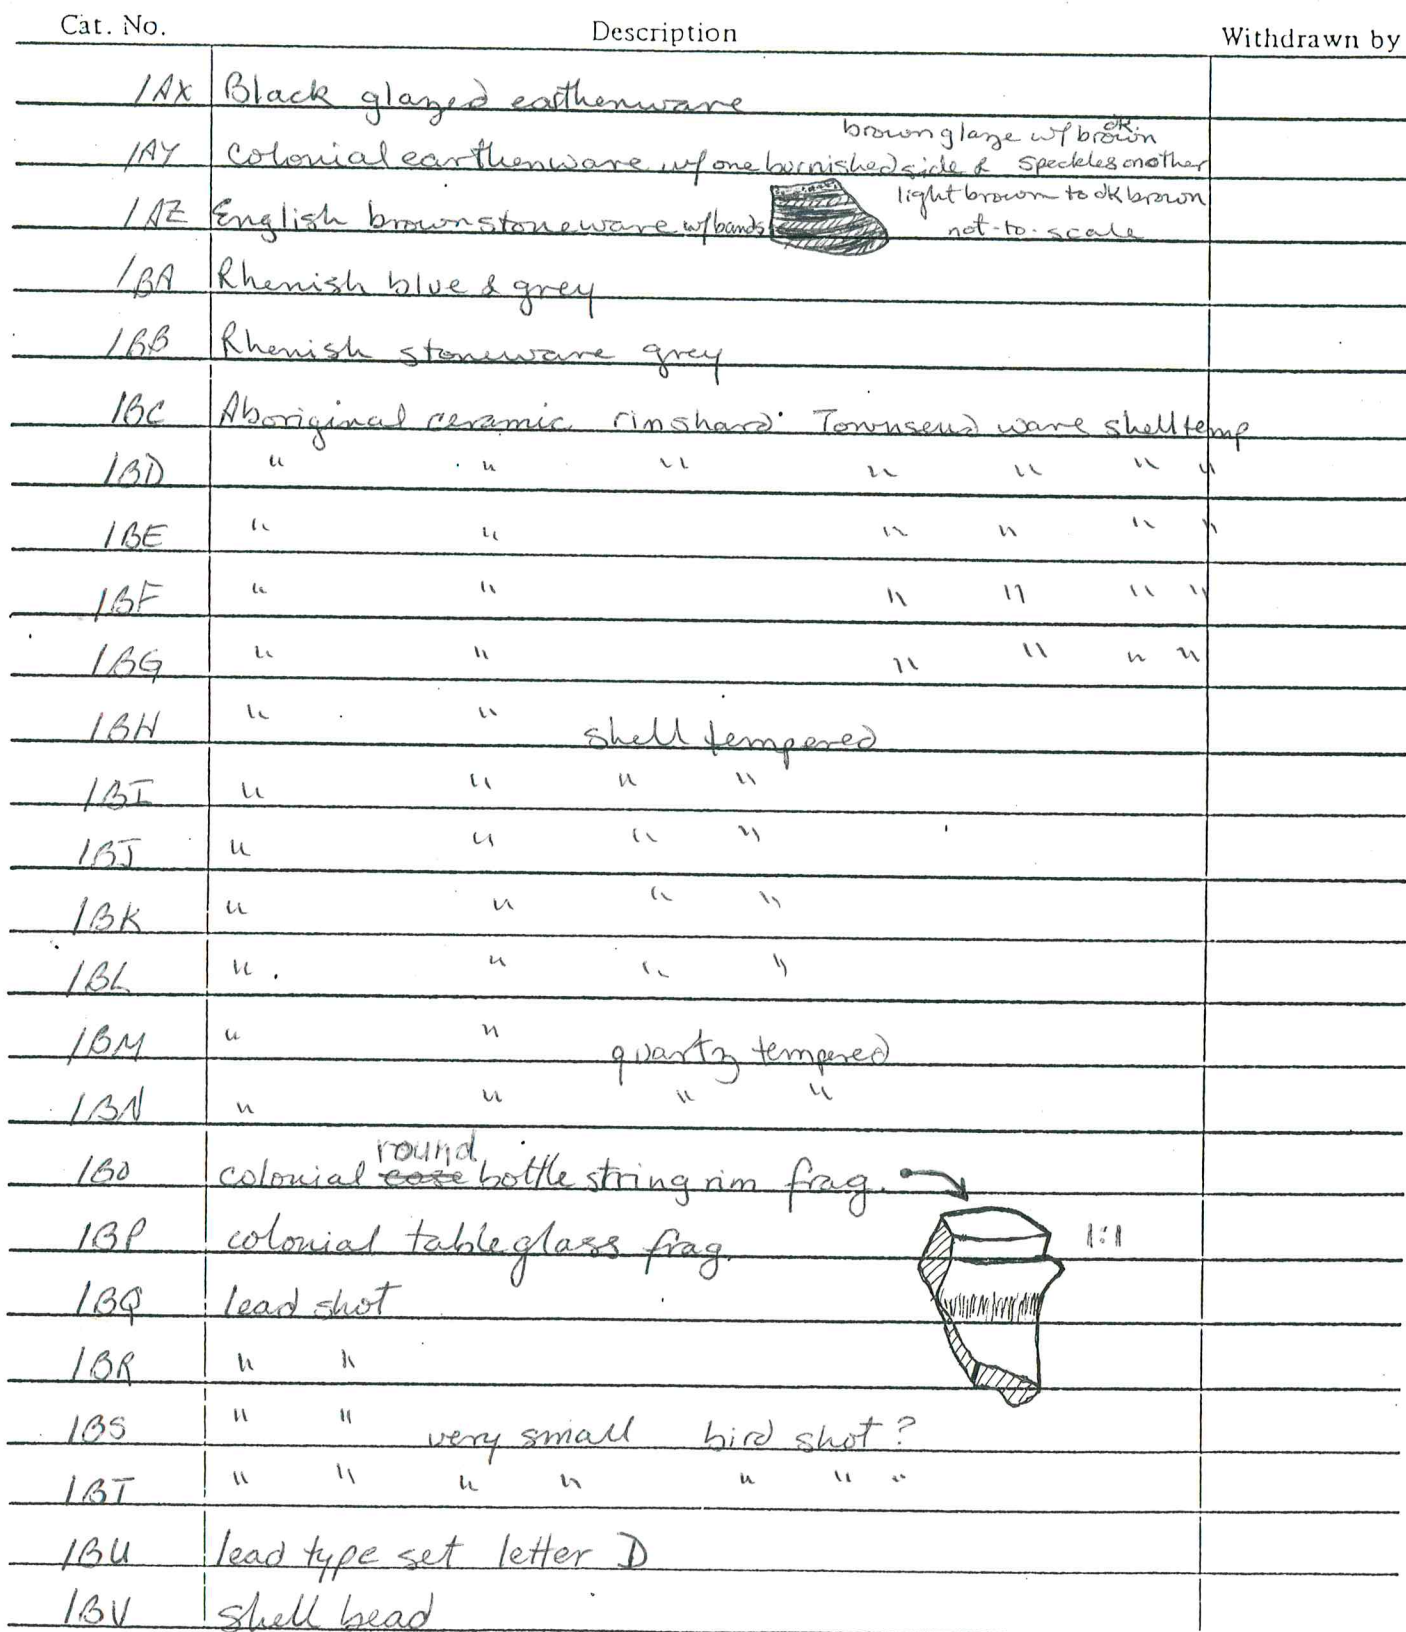 Cat. No. Description Withdrawn by
1AX Black glazed earthenware
1AY Colonial earthenware w/ one burnished side & brown glaze w/ dk. brown speckles on other
1AZ English brown stoneware w/ bands light brown to dk brown not-to-scale
1BA Rhenish blue & grey
1BB Rhenish stoneware grey
1BC Aboriginal ceramic rimshard Townsend ware shell temp
1BD " " " " " " "
1BE " " " " " "
1BF " " " " " "
1BG " " " " " "
1BH " " shell tempered
1BI " " " "
1BJ " " " "
1BK " " " "
1BL " " " "
1BM " " quartz tempered
1BN " " " "
1BO colonial round bottle string rim frag.
1BP colonial table glass frag. 1:1
1BQ lead shot
1BR " "
1BS " " very small bird shot?
1BT " " " " " " "
1BU lead type set letter D
1BV shell bead